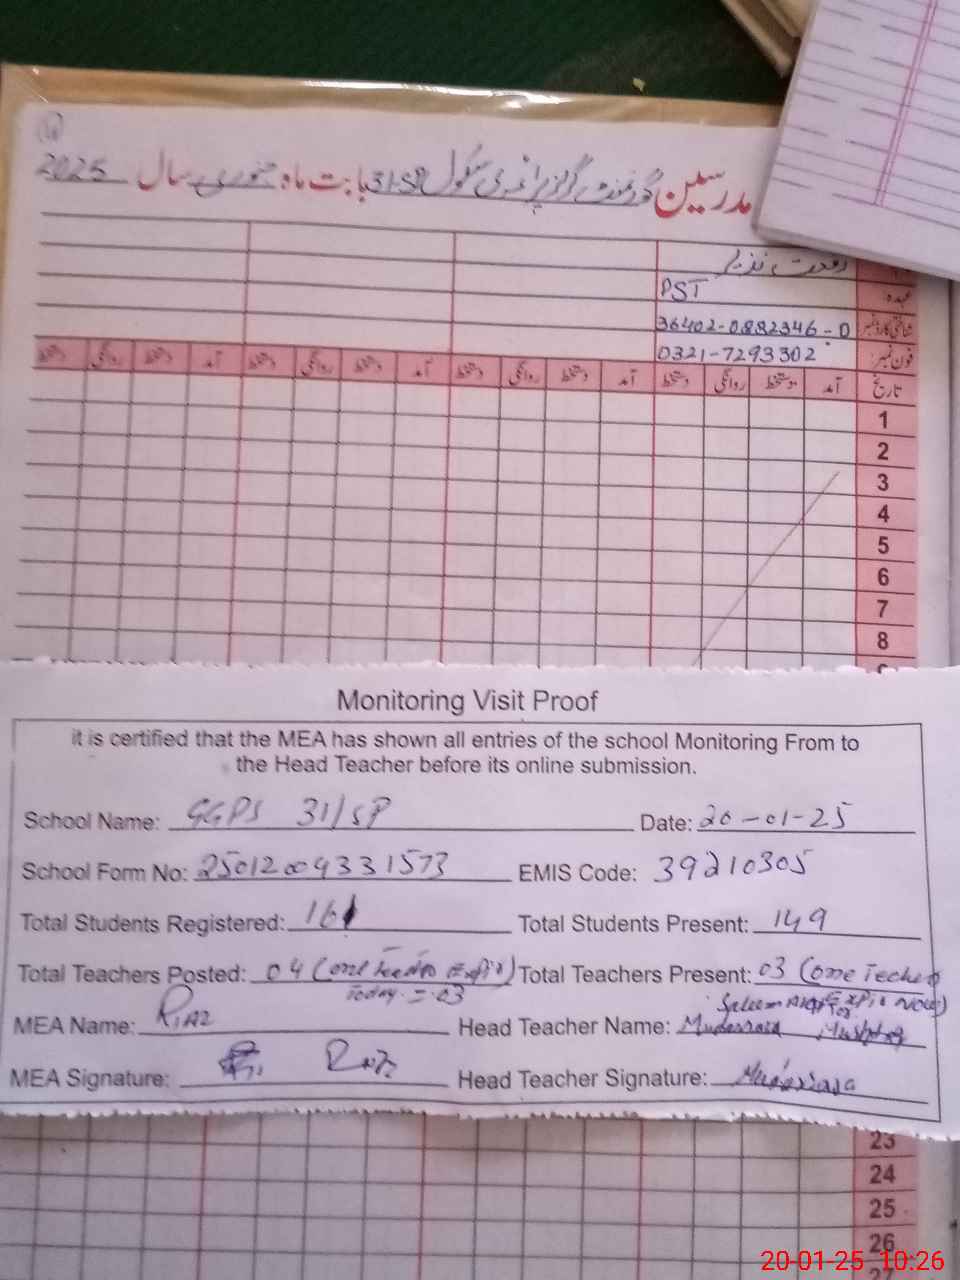 2025 مدرسین گورنمنٹ گرلز پرائمری سکول 31-SP بابت ماہ جنوری سال
رفعت نذیر
عہدہ: PST
شناختی کارڈ نمبر 36402-0882346-0
فون نمبر: 0321-7293302
تاریخ آمد دستخط روانگی دستخط آمد دستخط روانگی دستخط آمد دستخط روانگی دستخط آمد دستخط روانگی دستخط
1
2
3
4
5
6
7
8
Monitoring Visit Proof
it is certified that the MEA has shown all entries of the school Monitoring From to
the Head Teacher before its online submission.
School Name: GGPS 31/SP Date: 20-01-25
School Form No: 25012004331573 EMIS Code: 39210305
Total Students Registered: 161 Total Students Present: 149
Total Teachers Posted: 04 (one Today = 03 Total Teachers Present: 03 (one Teacher
MEA Name: Riaz Head Teacher Name: Mudassara
MEA Signature: Riaz Head Teacher Signature: Mudassara
23
24
25
26
27
20-01-25 10:26